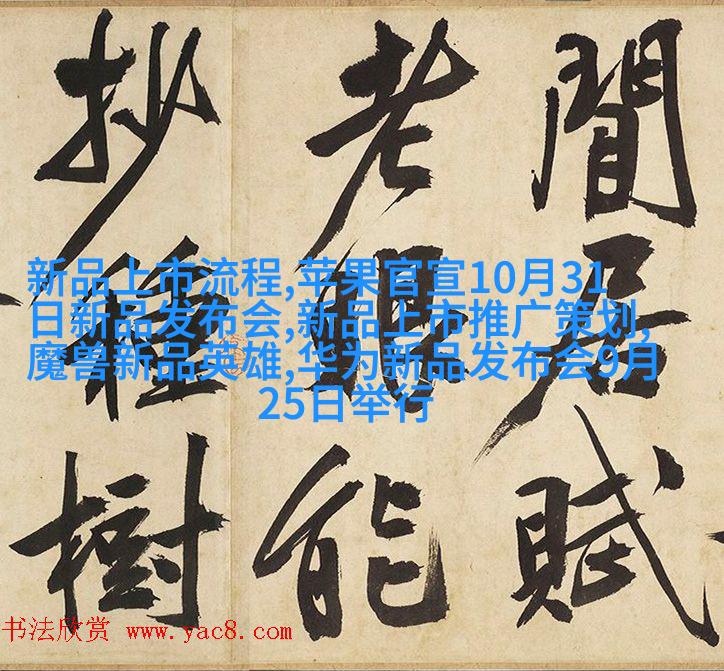 閒居賦
老眼能
抄種樹
新品上市流程,苹果官宣10月31
日新品发布会,新品上市推广策划,
魔兽新品英雄,华为新品发布会9月
25日举行
书法欣赏 www.yac8.com